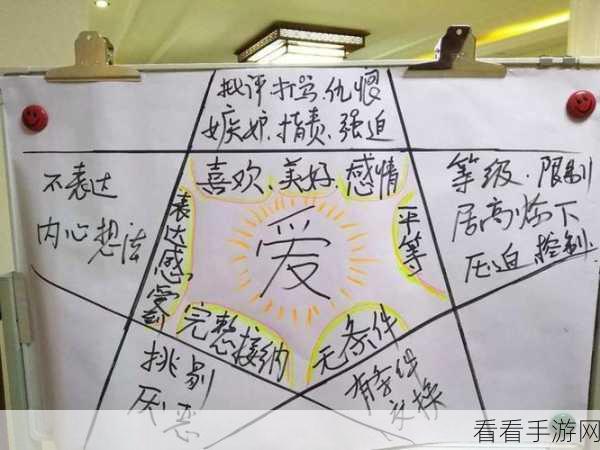 批评.打骂.仇恨
嫉妒.指责.强迫
不表达
内心想法
喜欢、美好、感情
等级.限制
居高临下
压迫.控制.
表达感受
爱
平等
完整接纳
无条件
挑剔
厌恶
有条件
交换
看看手游网